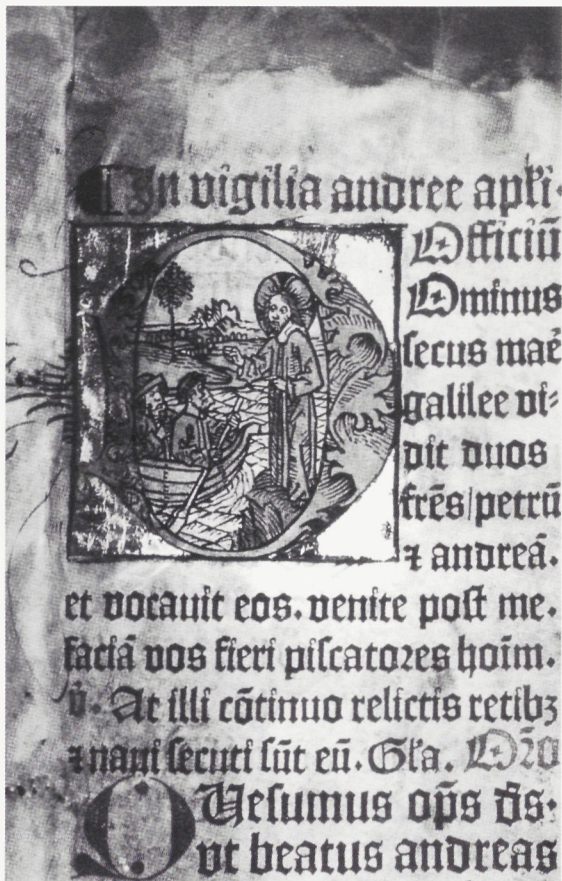 In vigilia andree apłi.
Officiū
Dominus
secus maē
galilee vi⸗
dit duos
frēs|petrū
⁊ andreā.
et vocauit eos. venite post me.
faciā vos fieri piscatores hoīm.
v̄. At illi cōtinuo relictis retibꝫ
⁊ naui secuti sūt eū. Gła. Oīo
QUesumus opс̄ dс̄.
vt beatus andreas